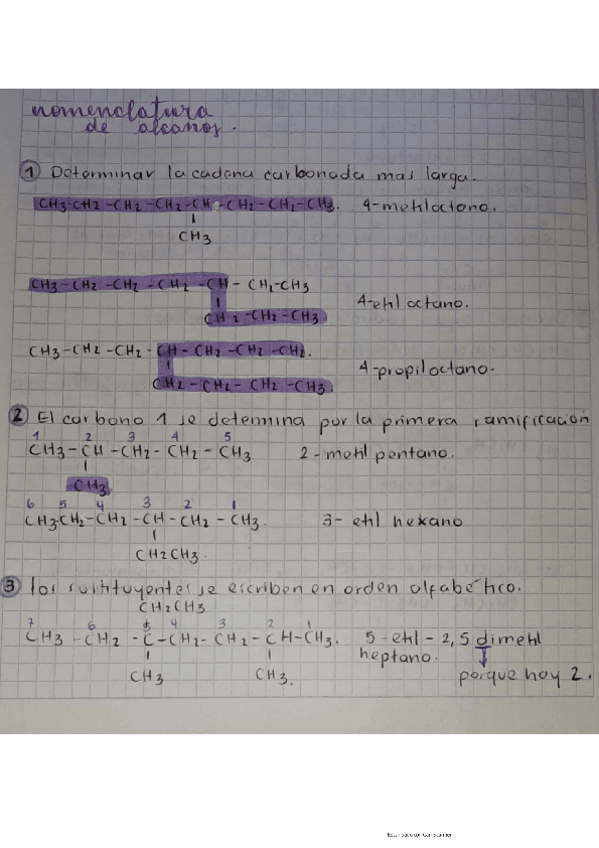 nomenclatura
de alcanos.
1 Determinar la cadena carbonada mas larga.
CH3-CH2-CH2-CH2-CH-CH2-CH2-CH3. 4-metiloctano.
CH3
CH3-CH2-CH2-CH2-CH-CH2-CH3
CH2-CH2-CH3 4-etil octano.
CH3-CH2-CH2-CH-CH2-CH2-CH2.
CH2-CH2-CH2-CH3. 4-propiloctano.
2 El carbono 1 se determina por la primera ramificación
1 2 3 4 5
CH3-CH-CH2-CH2-CH3 2-metil pentano.
CH3
6 5 4 3 2 1
CH3-CH2-CH2-CH-CH2-CH3. 3-etil hexano
CH2CH3.
3 los sustituyentes se escriben en orden alfabético.
CH2CH3
7 6 5 4 3 2 1
CH3-CH2-C-CH2-CH2-CH-CH3. 5-etil-2,5 dimetil
heptano.
CH3 CH3. porque hay 2.